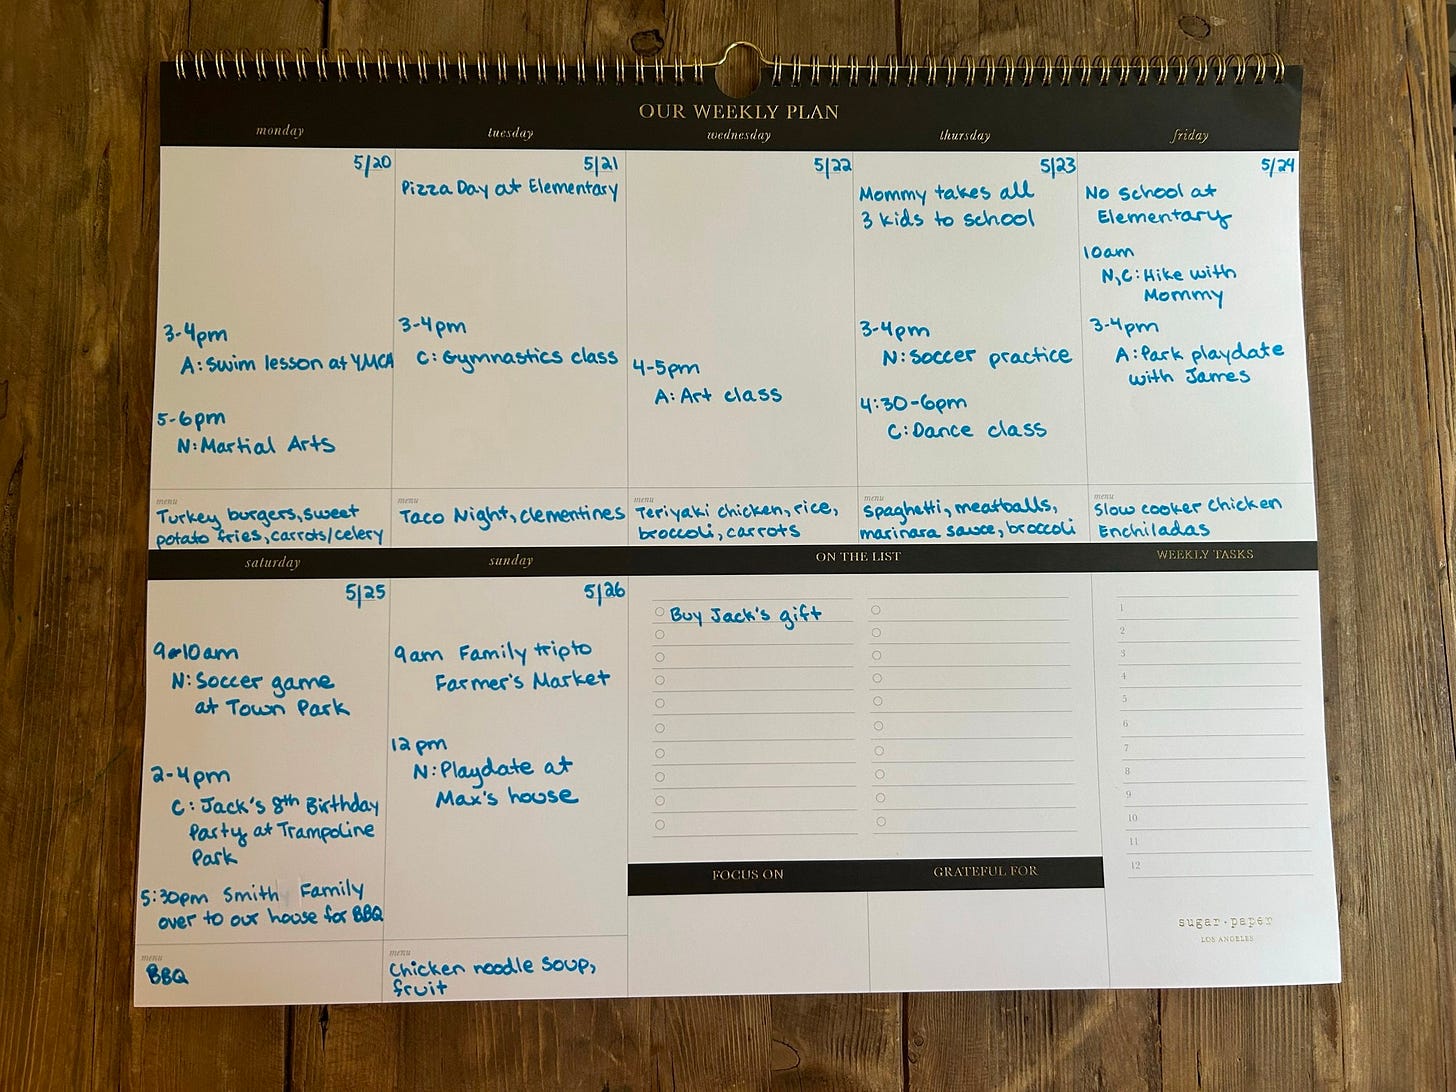 OUR WEEKLY PLAN
monday
tuesday
wednesday
thursday
friday
5/20
3-4pm
A: Swim lesson at YMCA
5-6pm
N: Martial Arts
menu
Turkey burgers, sweet
potato fries, carrots/celery
5/21
Pizza Day at Elementary
3-4pm
C: Gymnastics class
menu
Taco Night, clementines
5/22
4-5pm
A: Art class
menu
Teriyaki chicken, rice,
broccoli, carrots
5/23
Mommy takes all
3 kids to school
3-4pm
N: Soccer practice
4:30-6pm
C: Dance class
menu
Spaghetti, meatballs,
marinara sauce, broccoli
5/24
No school at
Elementary
10am
N,C: Hike with
Mommy
3-4pm
A: Park playdate
with James
menu
Slow cooker chicken
Enchiladas
saturday
sunday
ON THE LIST
WEEKLY TASKS
5/25
9-10am
N: Soccer game
at Town Park
2-4pm
C: Jack's 8th Birthday
Party at Trampoline
Park
5:30pm Smith Family
over to our house for BBQ
menu
BBQ
5/26
9am Family trip to
Farmer's Market
12pm
N: Playdate at
Max's house
menu
Chicken noodle soup,
fruit
Buy Jack's gift
1
2
3
4
5
6
7
8
9
10
11
12
FOCUS ON
GRATEFUL FOR
sugar·paper
LOS ANGELES